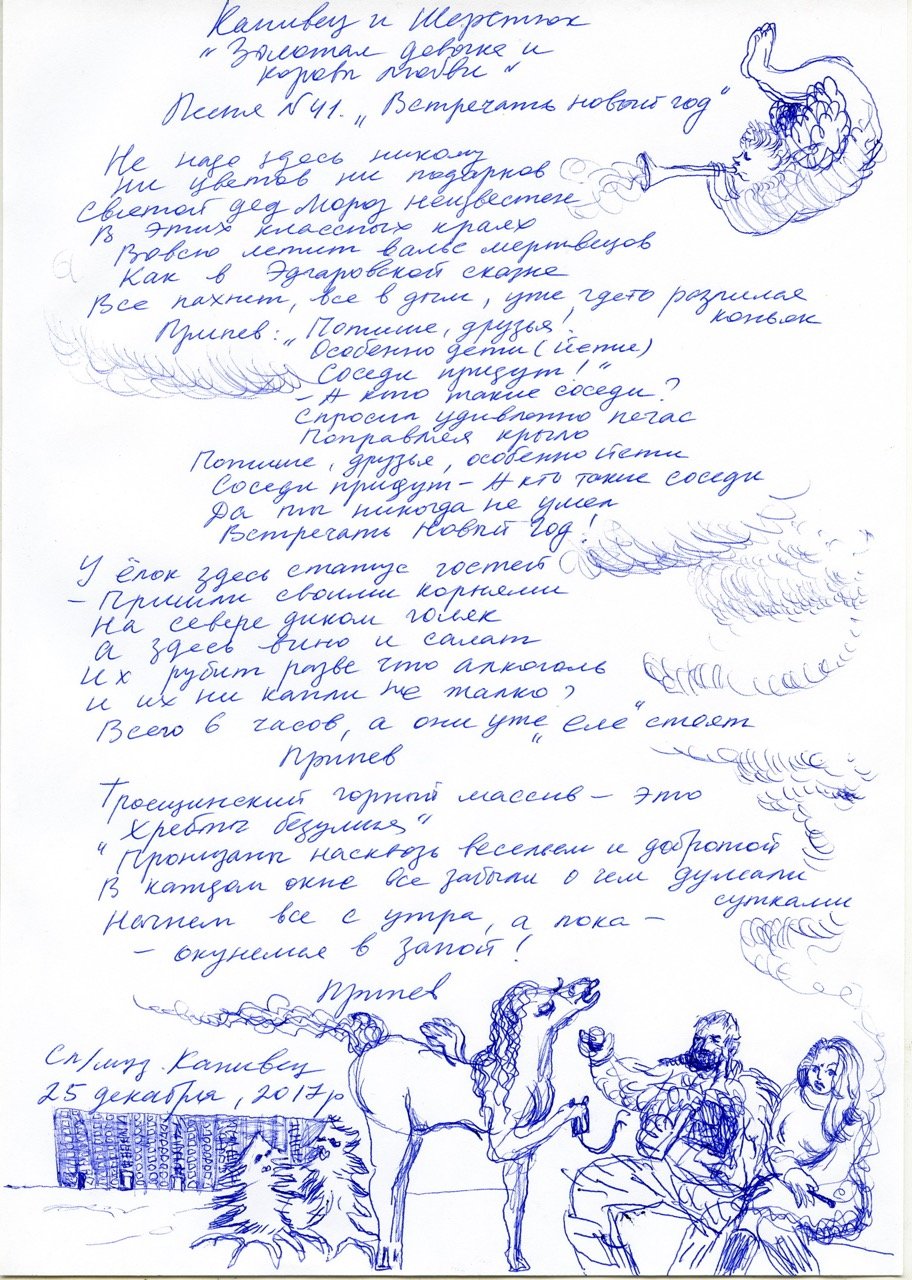 Капивец и Шерстюк
"Золотая девочка и
коровы любви"
Песня №41. "Встречать новый год"
Не надо здесь никому
ни цветов ни подарков
Святой дед Мороз неизвестен
В этих классных краях
Вовсю летит вальс мертвецов
Как в Эдгаровской сказке
Все пахнет, все в дым, уже где-то разлилая
коньяк
Припев: "Потише, друзья,
Особенно дети (йети)
Соседи придут!"
- А кто такие соседи?
Спросил удивлённо пегас
Поправляя крыло
Потише, друзья, особенно йети
Соседи придут - А кто такие соседи
Да ты никогда не умел
Встречать Новый год!
У ёлок здесь статус гостей
- Пришли своими корнями
На севере диком голяк
А здесь вино и салат
Их рубит разве что алкоголь
и их ни капли не жалко?
Всего 6 часов, а они уже "еле" стоят
Припев
Троещинский горный массив - это
"Хребты безумия"
Пронизаны насквозь весельем и добротой
В каждом окне все забыли о чем думали
сутками
Начнем все с утра, а пока -
- окунемся в запой!
Припев
Сл/муз. Капивец
25 декабря, 2017р